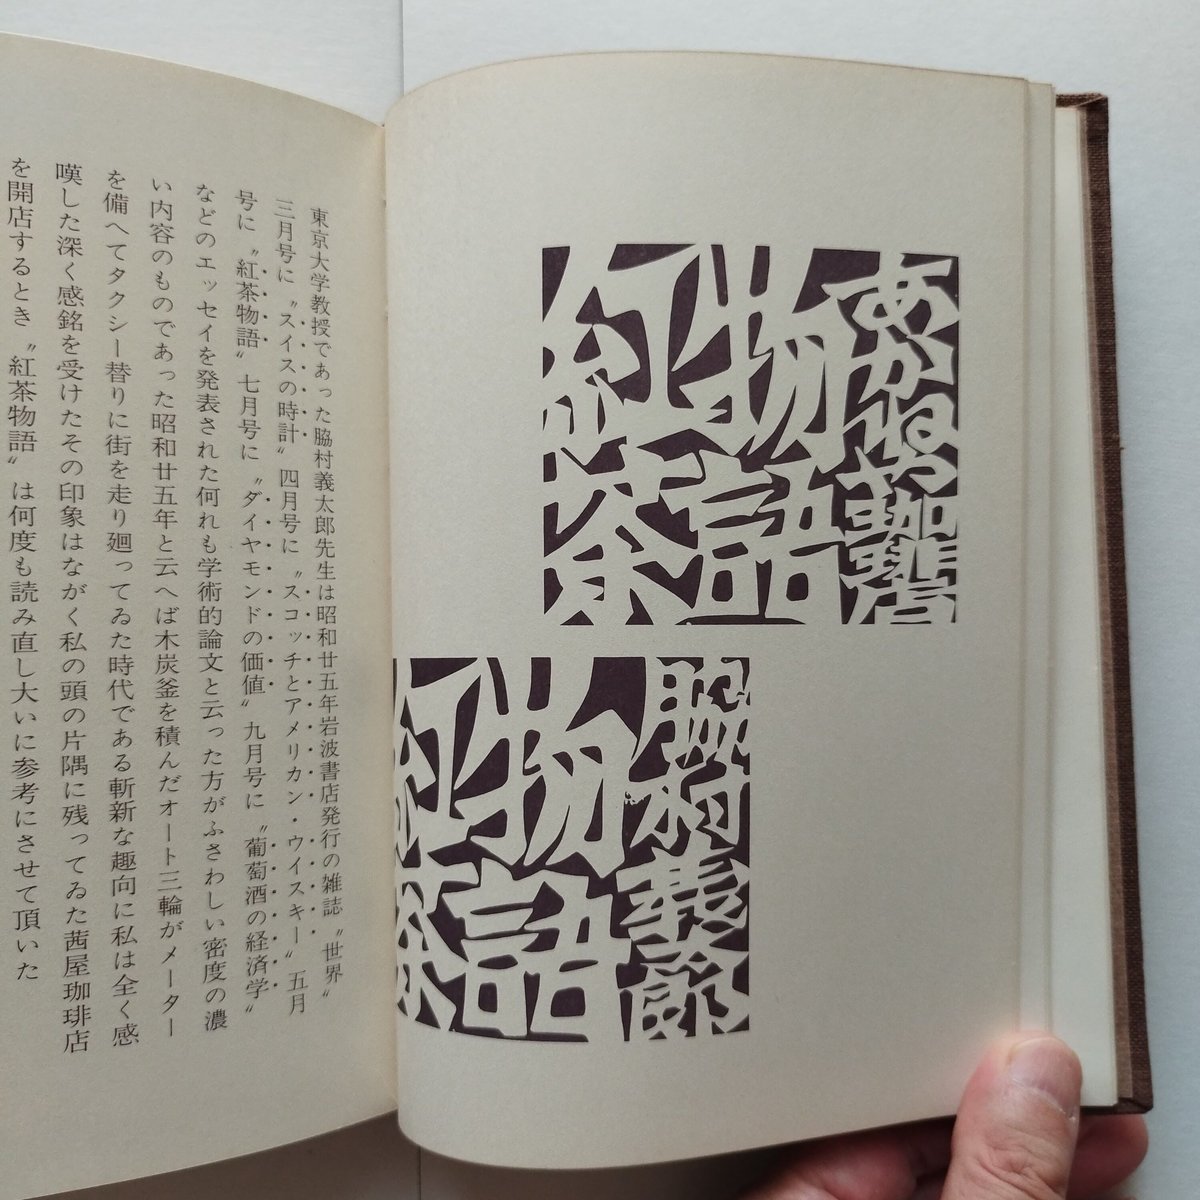 あかねや珈琲店
紅茶物語
脇村義太郎
紅茶物語
東京大学教授であった脇村義太郎先生は昭和廿五年岩波書店発行の雑誌〝世界〟
三月号に〝スイスの時計〟四月号に〝スコッチとアメリカン・ウイスキー〟五月
号に〝紅茶物語〟七月号に〝ダイヤモンドの価値〟九月号に〝葡萄酒の経済学〟
などのエッセイを発表された何れも学術的論文と云った方がふさわしい密度の濃
い内容のものであった昭和廿五年と云へば木炭釜を積んだオート三輪がメーター
を備へてタクシー替りに街を走り廻ってゐた時代である斬新な趣向に私は全く感
嘆した深く感銘を受けたその印象はながく私の頭の片隅に残ってゐた茜屋珈琲店
を開店するとき〝紅茶物語〟は何度も読み直し大いに参考にさせて頂いた